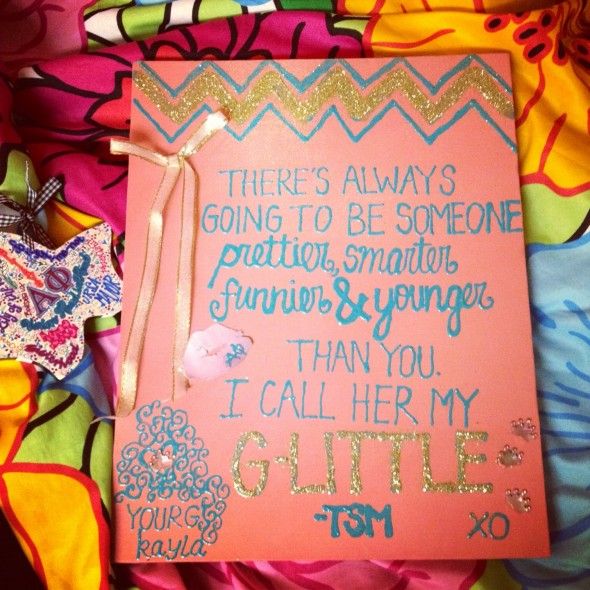 THERE'S ALWAYS
GOING TO BE SOMEONE
prettier, smarter
funnier & younger
THAN YOU.
I CALL HER MY
G-LITTLE
-TSM
XO
YOUR G,
kayla
ΑΦ